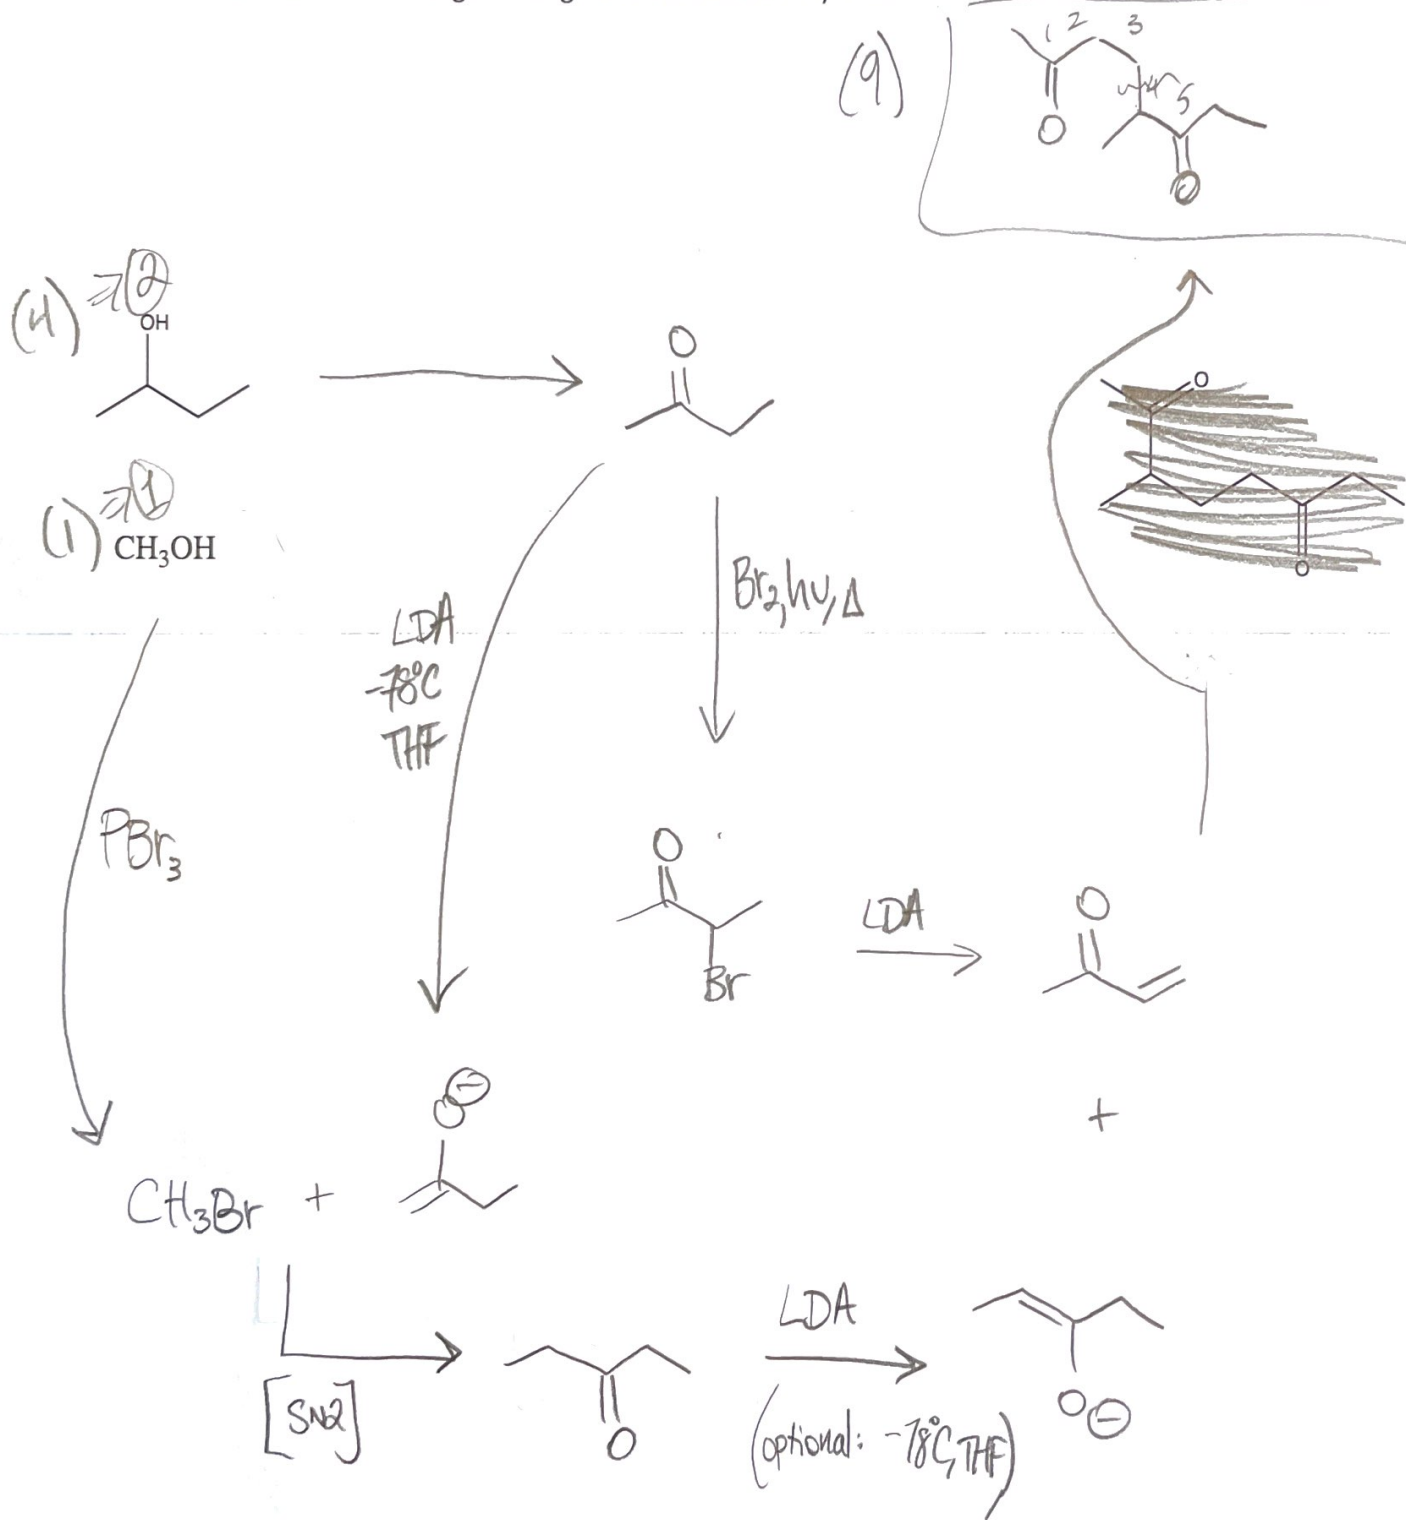 1 2 3
(9)
4 5
O
O
(4) ⇒ 2
OH
O
O
(1) ⇒ 1
CH₃OH
O
Br₂, hν, Δ
LDA
-78°C
THF
PBr₃
O
Br
LDA
O
O⊖
+
CH₃Br +
LDA
[SN2]
O
(optional: -78°C, THF)
O⊖